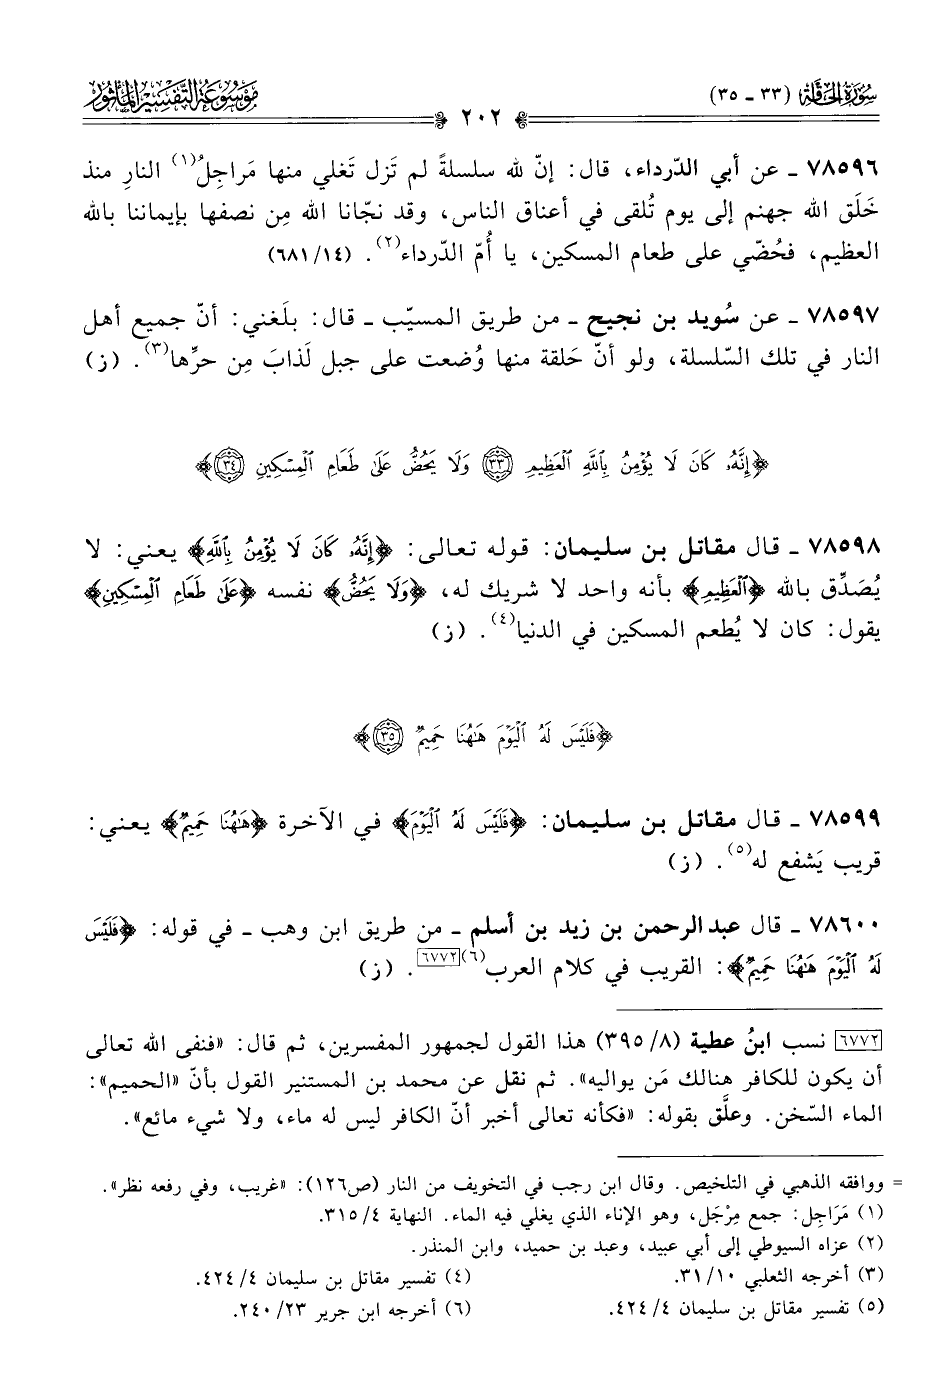 سُورَةُ الحَاقَّة (٣٣ ـ ٣٥)
٢٠٢
مَوْسُوعَة التَّفْسِير المَأثُور
٧٨٥٩٦ ـ عن أبي الدّرداء، قال: إنّ لله سلسلةً لم تَزل تَغلي منها مَراجِلُ(١) النارِ منذ
خَلَق الله جهنم إلى يوم تُلقى في أعناق الناس، وقد نجّانا الله مِن نصفها بإيماننا بالله
العظيم، فحُضّي على طعام المسكين، يا أُمّ الدّرداء(٢). (١٤/ ٦٨١)
٧٨٥٩٧ ـ عن سُويد بن نجيح ـ من طريق المسيّب ـ قال: بلَغني: أنّ جميع أهل
النار في تلك السّلسلة، ولو أنّ حَلقة منها وُضعت على جبل لَذابَ مِن حرِّها(٣). (ز)
﴿إِنَّهُۥ كَانَ لَا يُؤْمِنُ بِٱللَّهِ ٱلْعَظِيمِ ٣٣ وَلَا يَحُضُّ عَلَىٰ طَعَامِ ٱلْمِسْكِينِ ٣٤﴾
٧٨٥٩٨ ـ قال مقاتل بن سليمان: قوله تعالى: ﴿إِنَّهُۥ كَانَ لَا يُؤْمِنُ بِٱللَّهِ﴾ يعني: لا
يُصَدِّق بالله ﴿ٱلْعَظِيمِ﴾ بأنه واحد لا شريك له، ﴿وَلَا يَحُضُّ﴾ نفسه ﴿عَلَىٰ طَعَامِ ٱلْمِسْكِينِ﴾
يقول: كان لا يُطعم المسكين في الدنيا(٤). (ز)
﴿فَلَيْسَ لَهُ ٱلْيَوْمَ هَٰهُنَا حَمِيمٌ ٣٥﴾
٧٨٥٩٩ ـ قال مقاتل بن سليمان: ﴿فَلَيْسَ لَهُ ٱلْيَوْمَ﴾ في الآخرة ﴿هَٰهُنَا حَمِيمٌ﴾ يعني:
قريب يَشفع له(٥). (ز)
٧٨٦٠٠ ـ قال عبد الرحمن بن زيد بن أسلم ـ من طريق ابن وهب ـ في قوله: ﴿فَلَيْسَ
لَهُ ٱلْيَوْمَ هَٰهُنَا حَمِيمٌ﴾: القريب في كلام العرب(٦)[٦٧٧٢]. (ز)
[٦٧٧٢] نسب ابنُ عطية (٨/ ٣٩٥) هذا القول لجمهور المفسرين، ثم قال: «فنفى الله تعالى
أن يكون للكافر هنالك مَن يواليه». ثم نقل عن محمد بن المستنير القول بأنّ «الحميم»:
الماء السّخن. وعلَّق بقوله: «فكأنه تعالى أخبر أنّ الكافر ليس له ماء، ولا شيء مائع».
= ووافقه الذهبي في التلخيص. وقال ابن رجب في التخويف من النار (ص١٢٦): «غريب، وفي رفعه نظر».
(١) مَرَاجِل: جمع مِرْجَل، وهو الإناء الذي يغلي فيه الماء. النهاية ٤/ ٣١٥.
(٢) عزاه السيوطي إلى أبي عبيد، وعبد بن حميد، وابن المنذر.
(٣) أخرجه الثعلبي ١٠/ ٣١. (٤) تفسير مقاتل بن سليمان ٤/ ٤٢٤.
(٥) تفسير مقاتل بن سليمان ٤/ ٤٢٤. (٦) أخرجه ابن جرير ٢٣/ ٢٤٠.